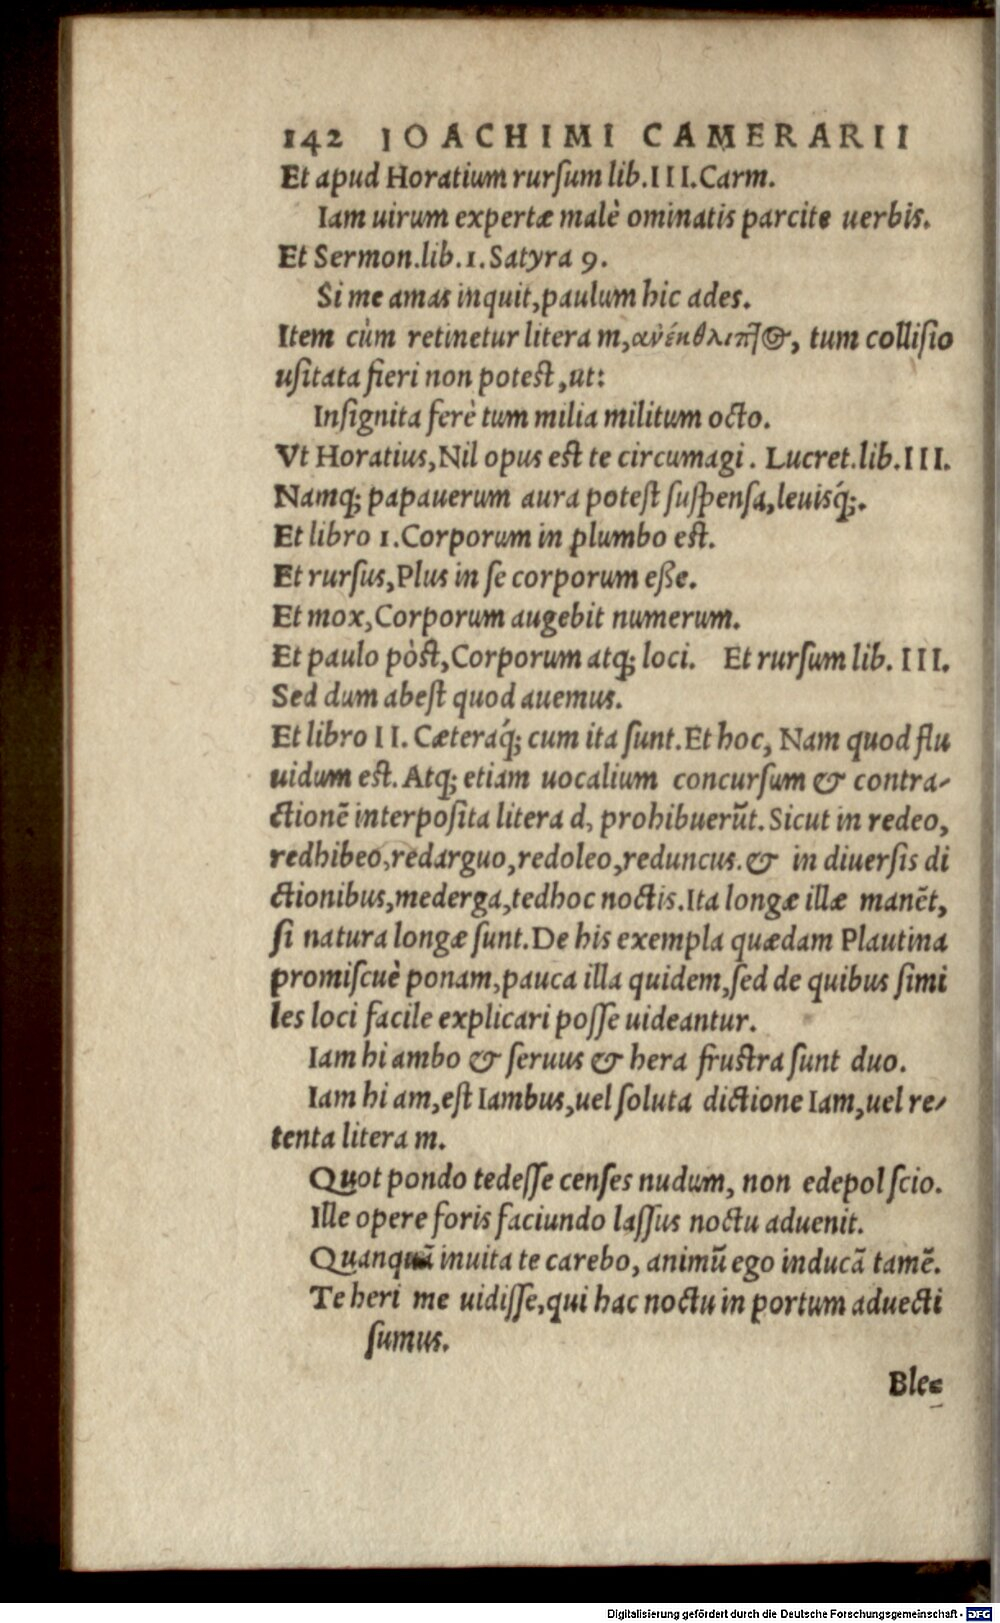 142 IOACHIMI CAMERARII
Et apud Horatium rurſum lib.III.Carm.
Iam uirum expertæ malè ominatis parcite uerbis.
Et Sermon.lib.1.Satyra 9.
Si me amas inquit,paulum hic ades.
Item cùm retinetur litera m, tum colliſio
uſitata fieri non poteſt,ut:
Inſignita ferè tum milia militum octo.
Vt Horatius,Nil opus eſt te circumagi. Lucret.lib.III.
Namq; papauerum aura poteſt ſuſpenſa,leuisq́;.
Et libro 1.Corporum in plumbo eſt.
Et rurſus,Plus in ſe corporum eße.
Et mox,Corporum augebit numerum.
Et paulo pòſt,Corporum atq; loci. Et rurſum lib. III.
Sed dum abeſt quod auemus.
Et libro II. Cæteraq́; cum ita ſunt.Et hoc, Nam quod flu
uidum eſt. Atq; etiam uocalium concurſum & contra-
ctionē interpoſita litera d, prohibuerūt. Sicut in redeo,
redhibeo,redarguo,redoleo,reduncus.& in diuerſis di
ctionibus,mederga,tedhoc noctis.Ita longæ illæ manēt,
ſi natura longæ ſunt.De his exempla quædam Plautina
promiſcuè ponam,pauca illa quidem,ſed de quibus ſimi
les loci facile explicari poſſe uideantur.
Iam hi ambo & ſeruus & hera fruſtra ſunt duo.
Iam hi am,eſt Iambus,uel ſoluta dictione Iam,uel re-
tenta litera m.
Quot pondo tedeſſe cenſes nudum, non edepol ſcio.
Ille opere foris faciundo laſſus noctu aduenit.
Quanquā inuita te carebo, animū ego inducā tamē.
Te heri me uidiſſe,qui hac noctu in portum aduecti
ſumus.
Ble=
Digitalisierung gefördert durch die Deutsche Forschungsgemeinschaft - DFG